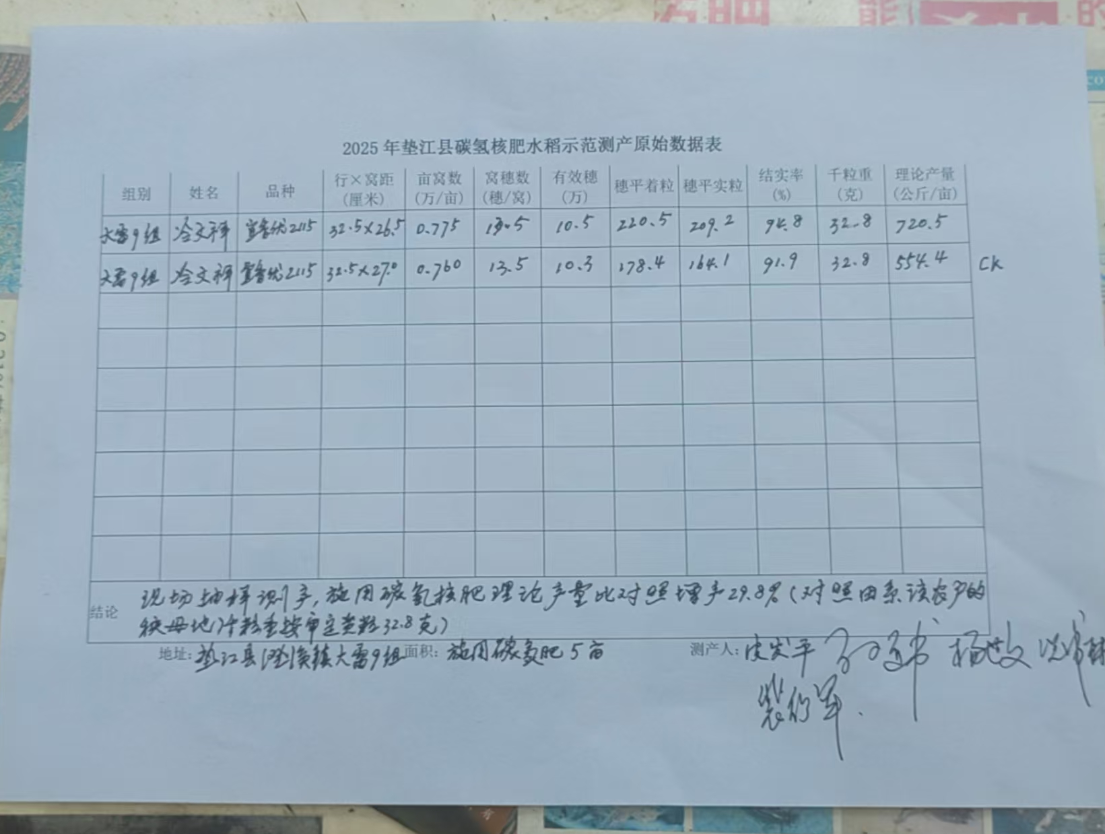 2025年垫江县碳氢核肥水稻示范测产原始数据表
组别 姓名 品种 行×窝距(厘米) 亩窝数(万/亩) 窝穗数(穗/窝) 有效穗(万) 穗平着粒 穗平实粒 结实率(%) 千粒重(克) 理论产量(公斤/亩)
大雷9组 冷文祥 宜香优2115 32.5×26.5 0.775 13.5 10.5 220.5 209.2 94.8 32.8 720.5
大雷9组 冷文祥 宜香优2115 32.5×27.0 0.760 13.5 10.3 178.4 164.1 91.9 32.8 554.4 CK
结论 现场抽样测产,施用碳氢核肥理论产量比对照增产29.8%(对照田系该农户的
千粒重按审定类粒32.8克)
地址:垫江县澄溪镇大雷9组 面积:施用碳氢肥5亩 测产人: